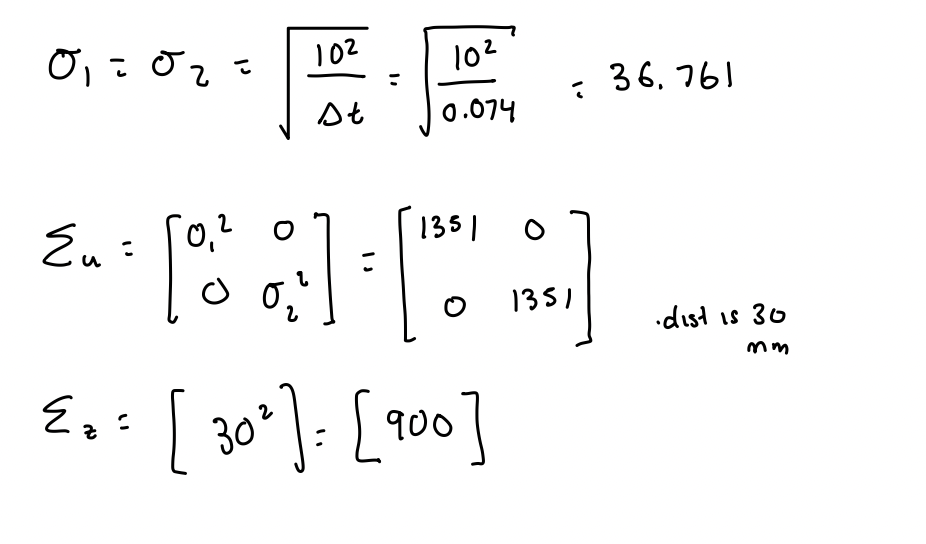 σ₁ = σ₂ = √(10²/Δt) = √(10²/0.074) = 36.761
Σᵤ = [σ₁² 0; 0 σ₂²] = [1351 0; 0 1351]
.dist is 30
mm
Σ_z = [30²] = [900]